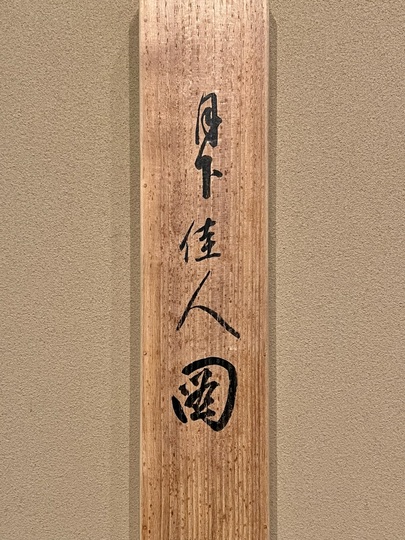 月下佳人圖